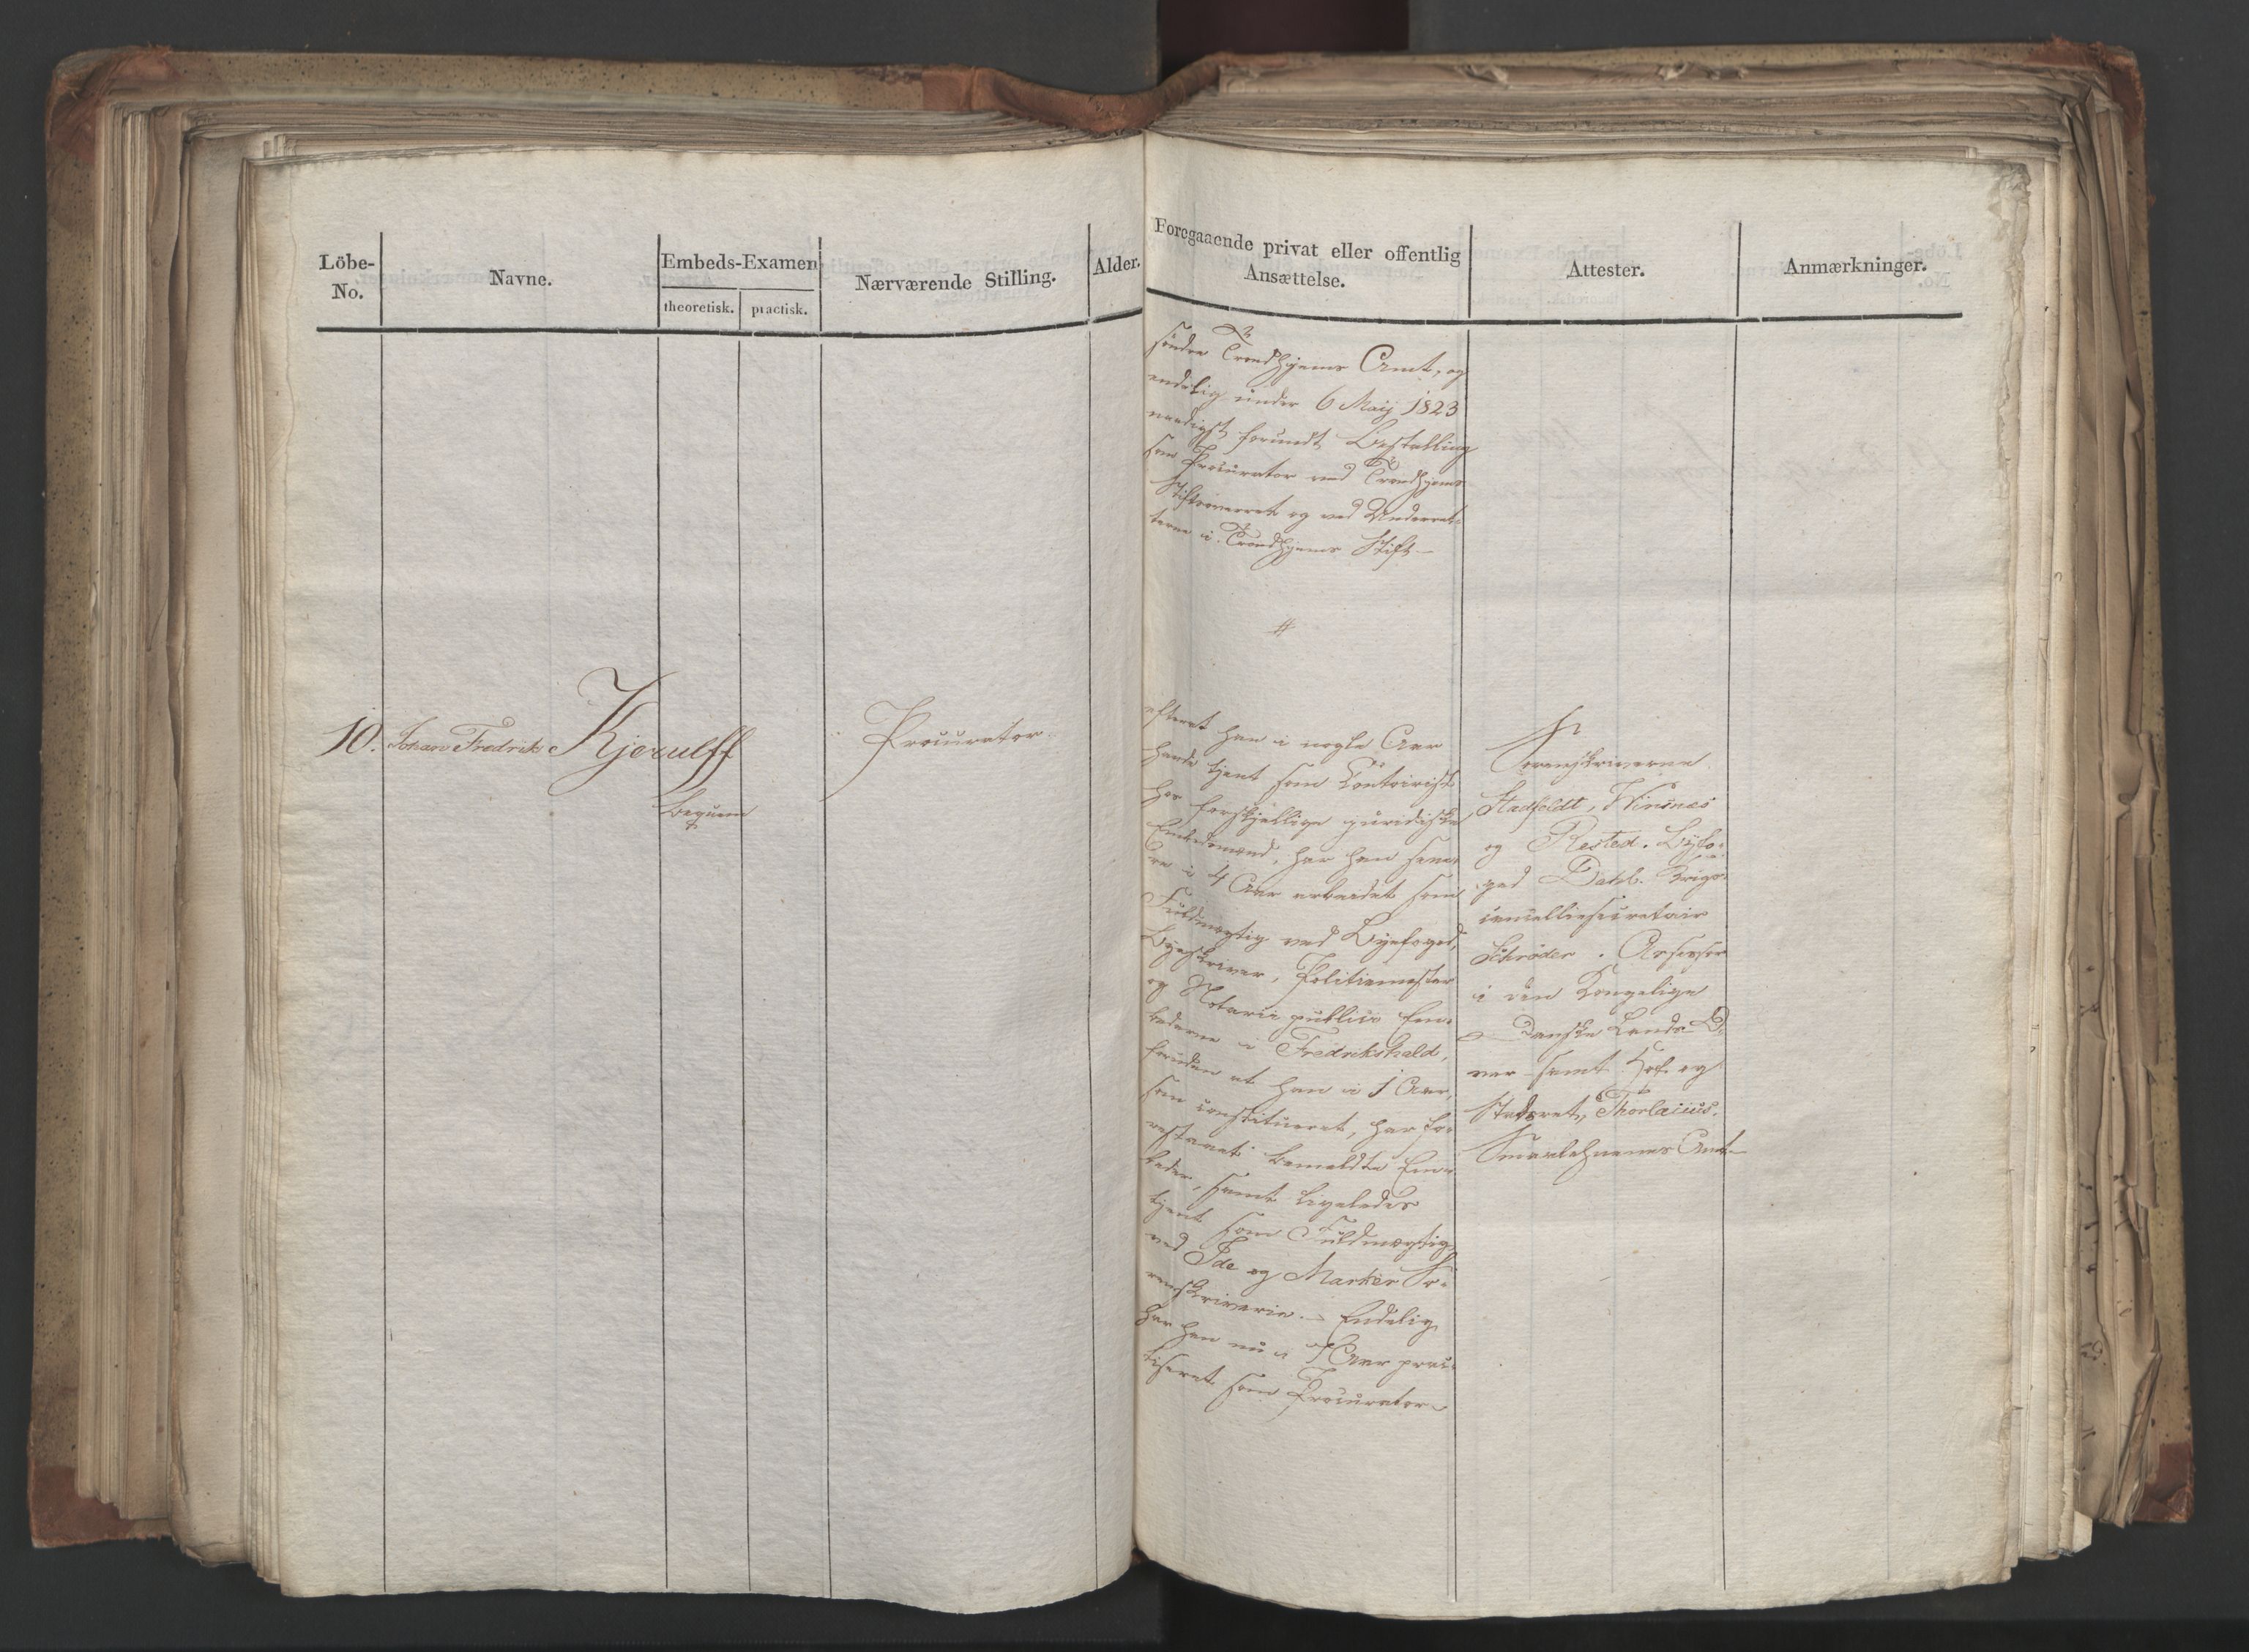 Löbe-
No.
Navne.
Embeds-Examen
theoretisk.
practisk.
Nærværende Stilling.
Alder.
Foregaaende privat eller offentlig
Ansættelse.
Attester.
Anmærkninger.
søndre Trondhjems Amt, og
endelig under 6 Maij 1823
naadigst forundt Bestalling
som Procurator ved Trondhjems
Stiftsoverret og ved Underret-
terne i Trondhjems Stift.—
#
10. Johan Fredrik Kjerulff
beqvem
Procurator
efterat han i nogle Aar
havde tjent som Contoirist
hos forskjellige juridiske
Embedsmænd, har han sene-
re i 4 Aar arbeidet som
Fuldmægtig ved Byefoged,
Byeskriver, Politiemester
og Notarii publici Em-
bederne i Fredrikshald,
foruden at han i 1 Aar,
som constitueret, har fo-
restaaet bemeldte Em-
beder, samt ligeledes
tjent som Fuldmægtig
ved Ide og Marker So-
renskriverie.— Endelig
har han nu i 7 Aar prac-
tiseret som Procurator
Sorenskriverne
Stadfeldt, Winsnes
og Rested. Byfo-
ged Dahl. Krigs-
cancelliesecretair
Schrøder. Assessor
i den Kongelige
Danske Lands O-
ver samt Hof og
Stadsret, Thorlacius.
Smaalehnenes Amt—